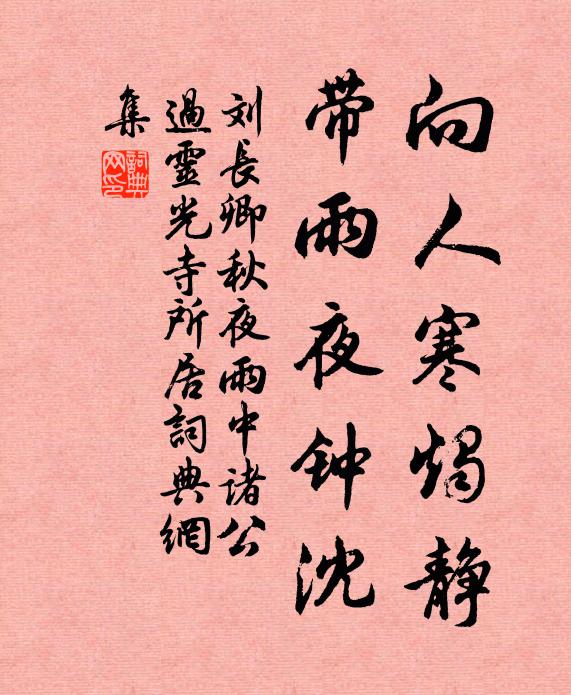 向人寒烛静
带雨夜钟沈
刘長卿秋夜雨中諸公
過靈光寺所居詞典網
集
詞典
网印